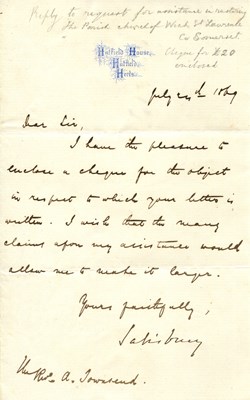 Reply to request for assistance in restoring
the Parish church of Weak St Lawrence
Co Somerset
Cheque for £20
enclosed
Hatfield House,
Hatfield,
Herts.
July 24th 1869
Dear Sir,
I have the pleasure to
enclose a cheque for the object
in respect to which your letter is
written. I wish that the many
claims upon my assistance would
allow me to make it larger.
Yours faithfully,
Salisbury
The Revd A. Townsend.